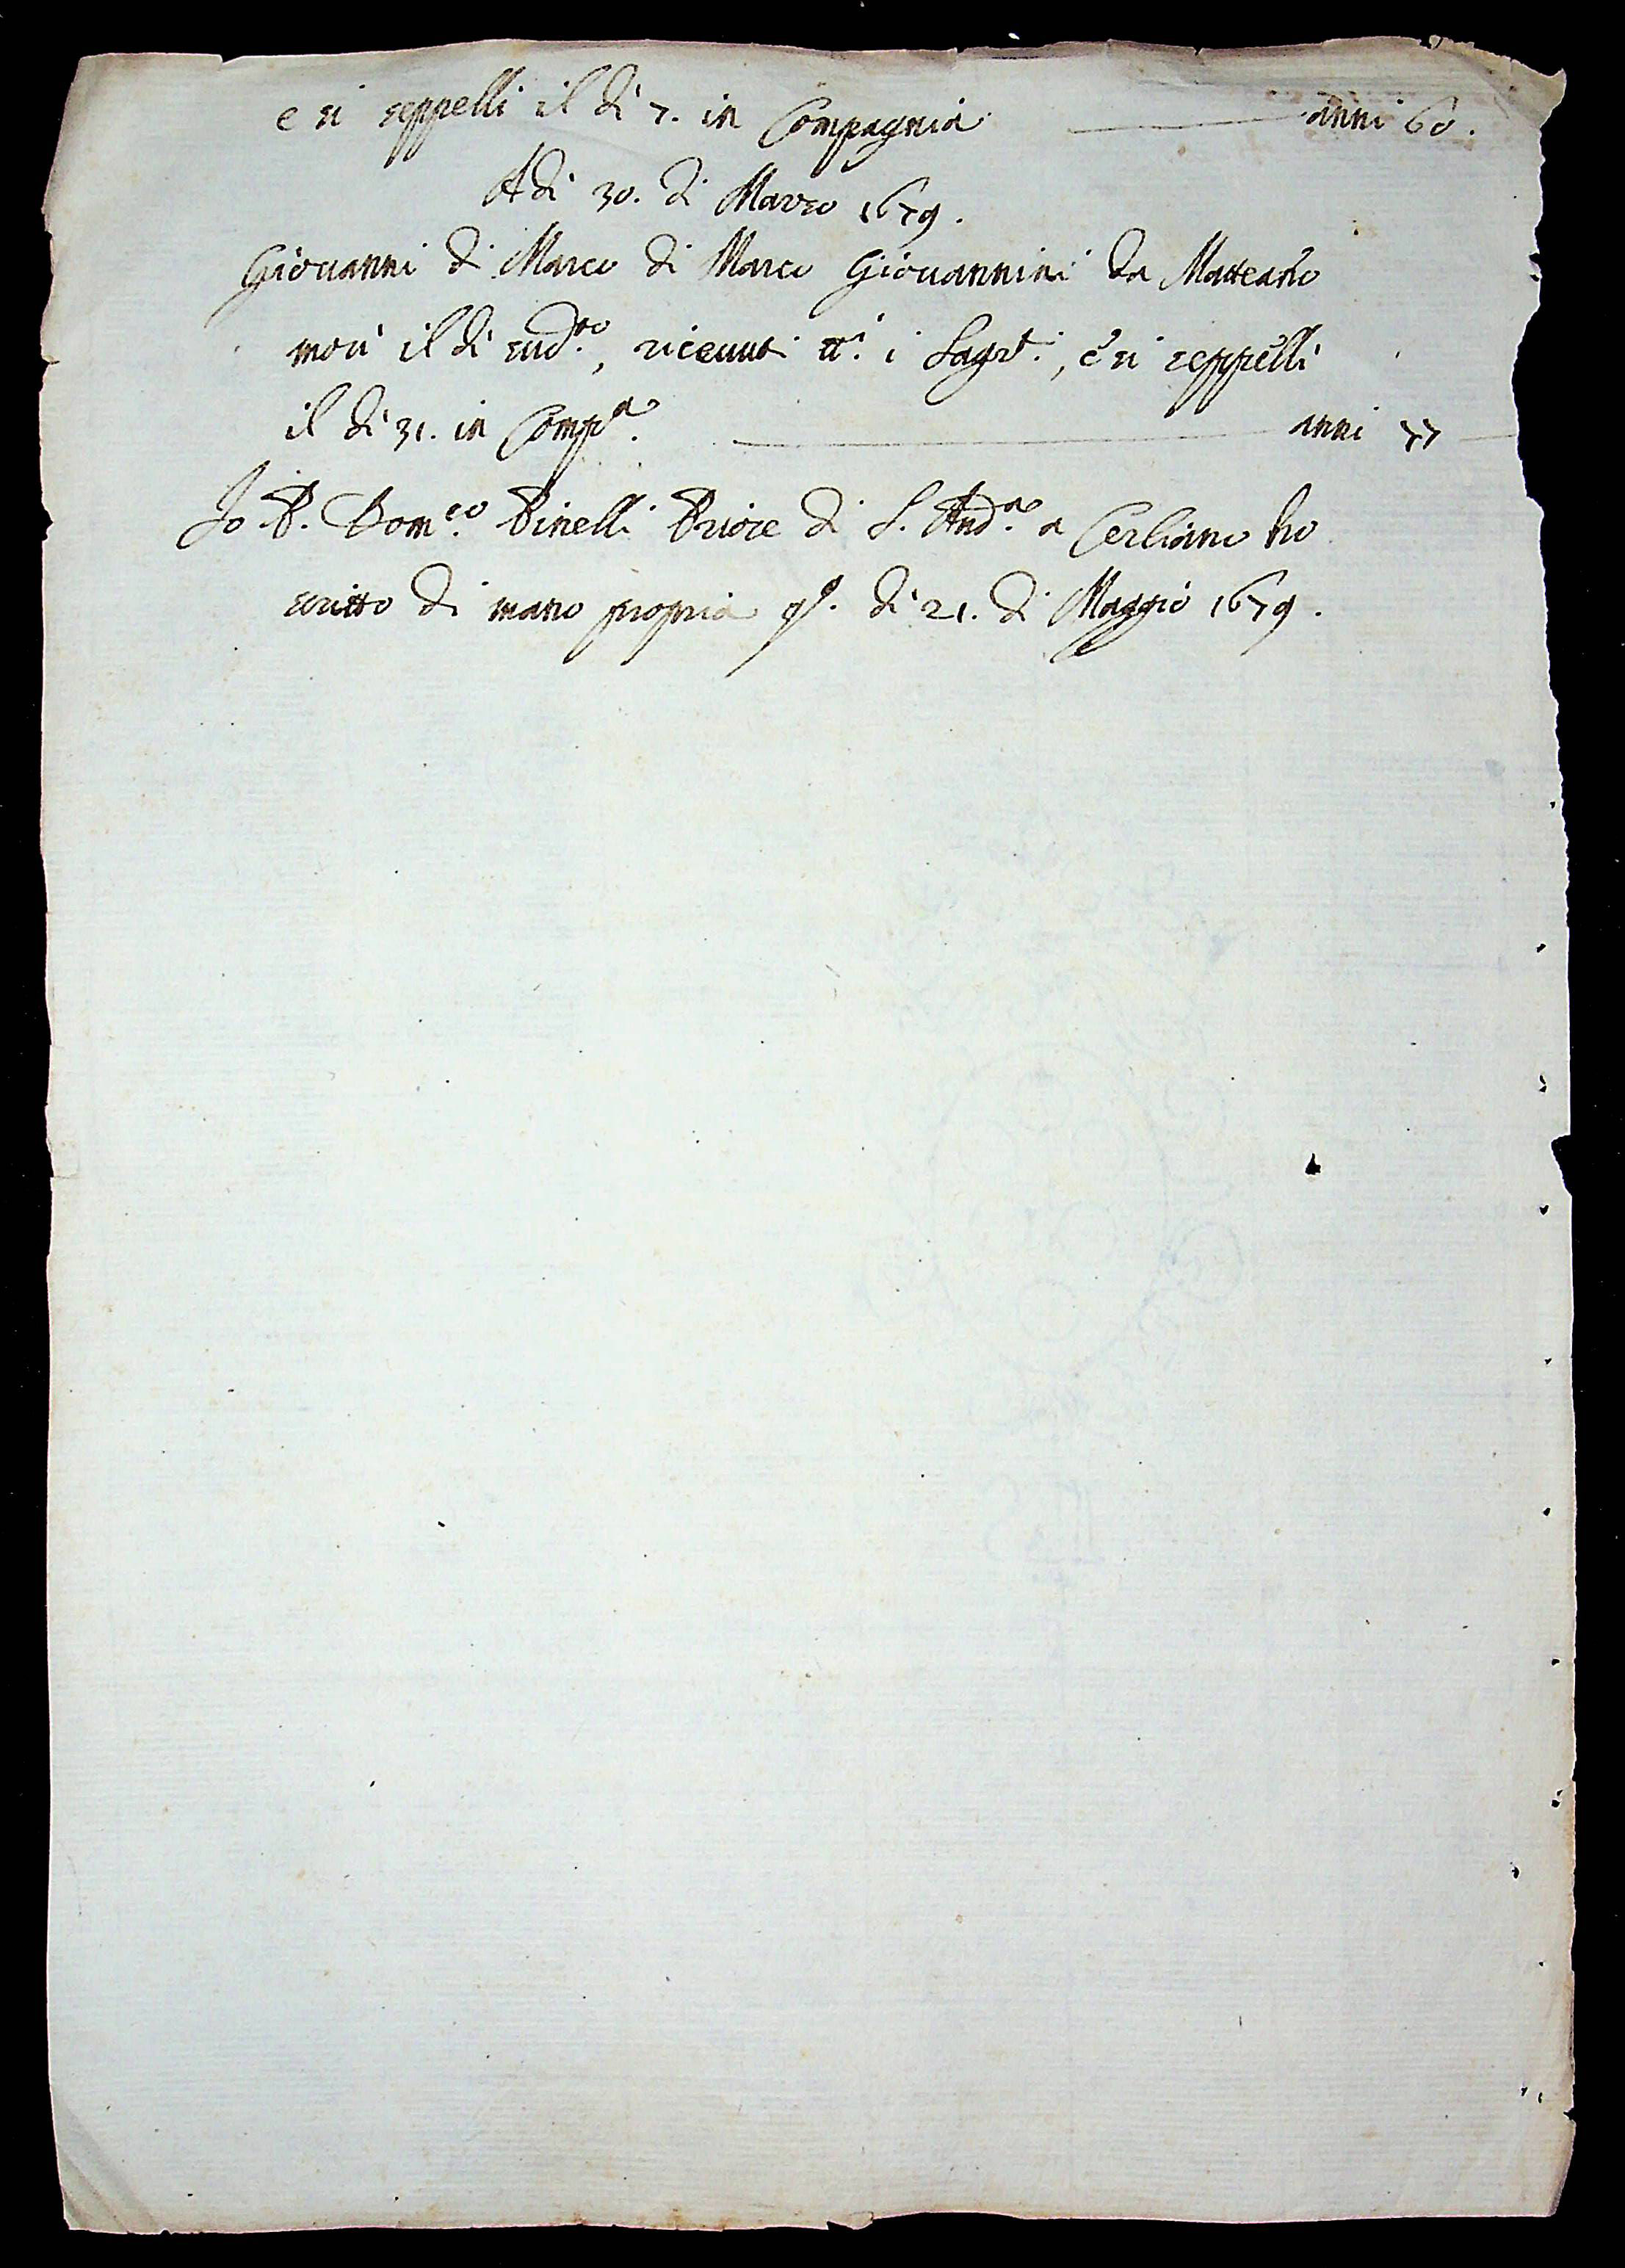 e si seppelli il dì 7. in Compagnia anni 60.
A dì 30. di Marzo 1679.
Giovanni di Marco di Marco Giovannini da
morì il dì sud.to, ricevuti tt.i i Sagr.ti, e si seppellì
il dì 31. in Comp.a anni 77
Io P. Dom.co Pinelli Priore di S. And.a a Cerliano ho
scritto di mano propria q.o dì 21. di Maggio 1679.